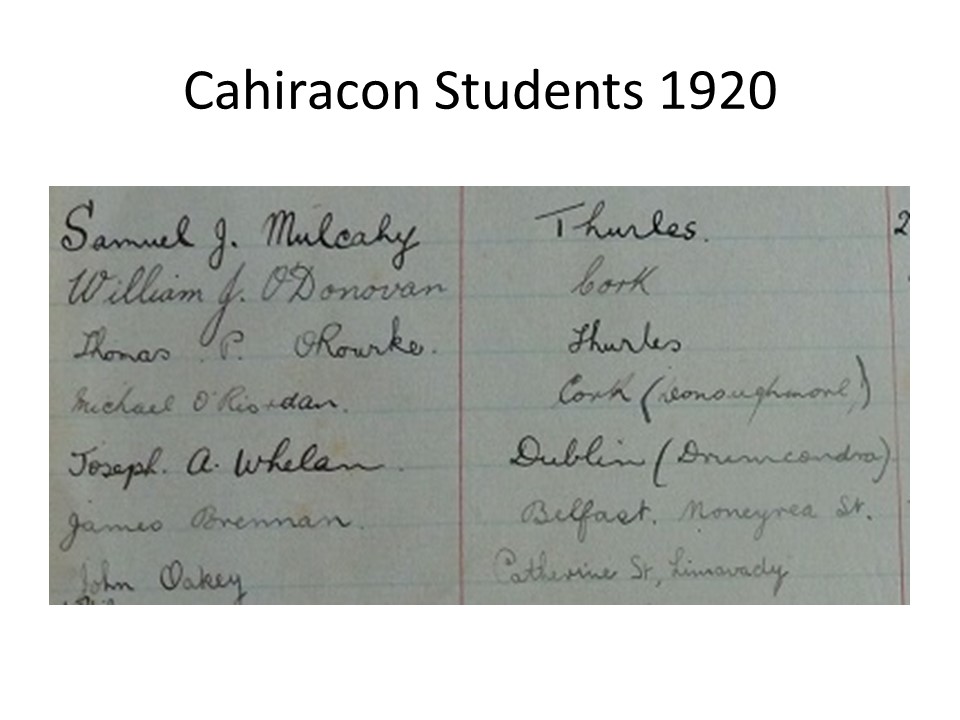 Cahiracon Students 1920
Samuel J. Mulcahy Thurles. 2
William J. O'Donovan Cork
Thomas P. O'Rourke. Thurles
Michael O'Riordan. Cork (Donoughmore)
Joseph. A. Whelan. Dublin (Drumcondra)
James Brennan. Belfast. Moneyrea St.
John Oakey Catherine St, Limavady